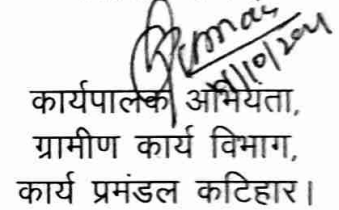 कार्यपालक अभियंता,
ग्रामीण कार्य विभाग,
कार्य प्रमंडल कटिहार।